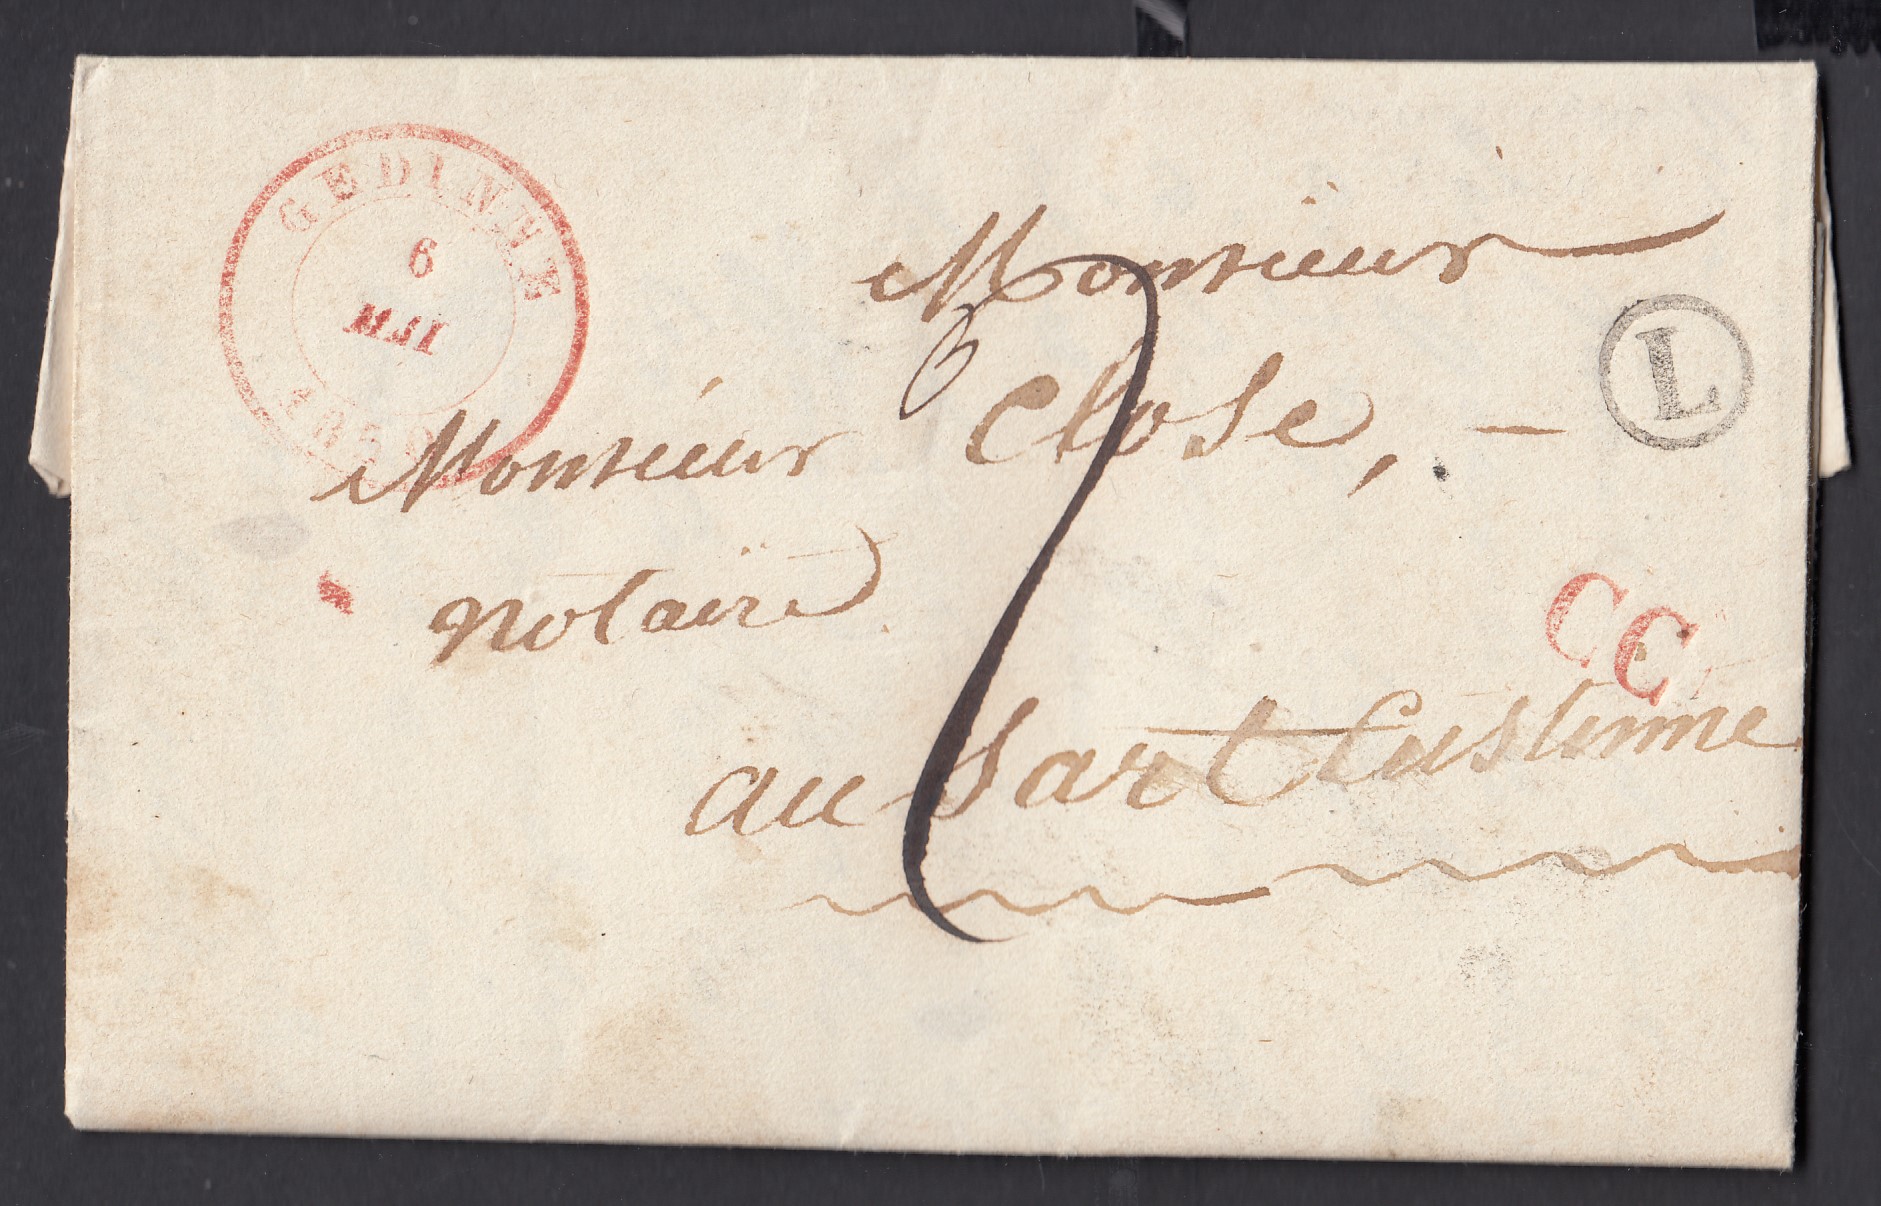 GEDINNE
6
MAI
185
Monsieur
Monsieur Close, –
L
notaire
CC
au Sart Custinne